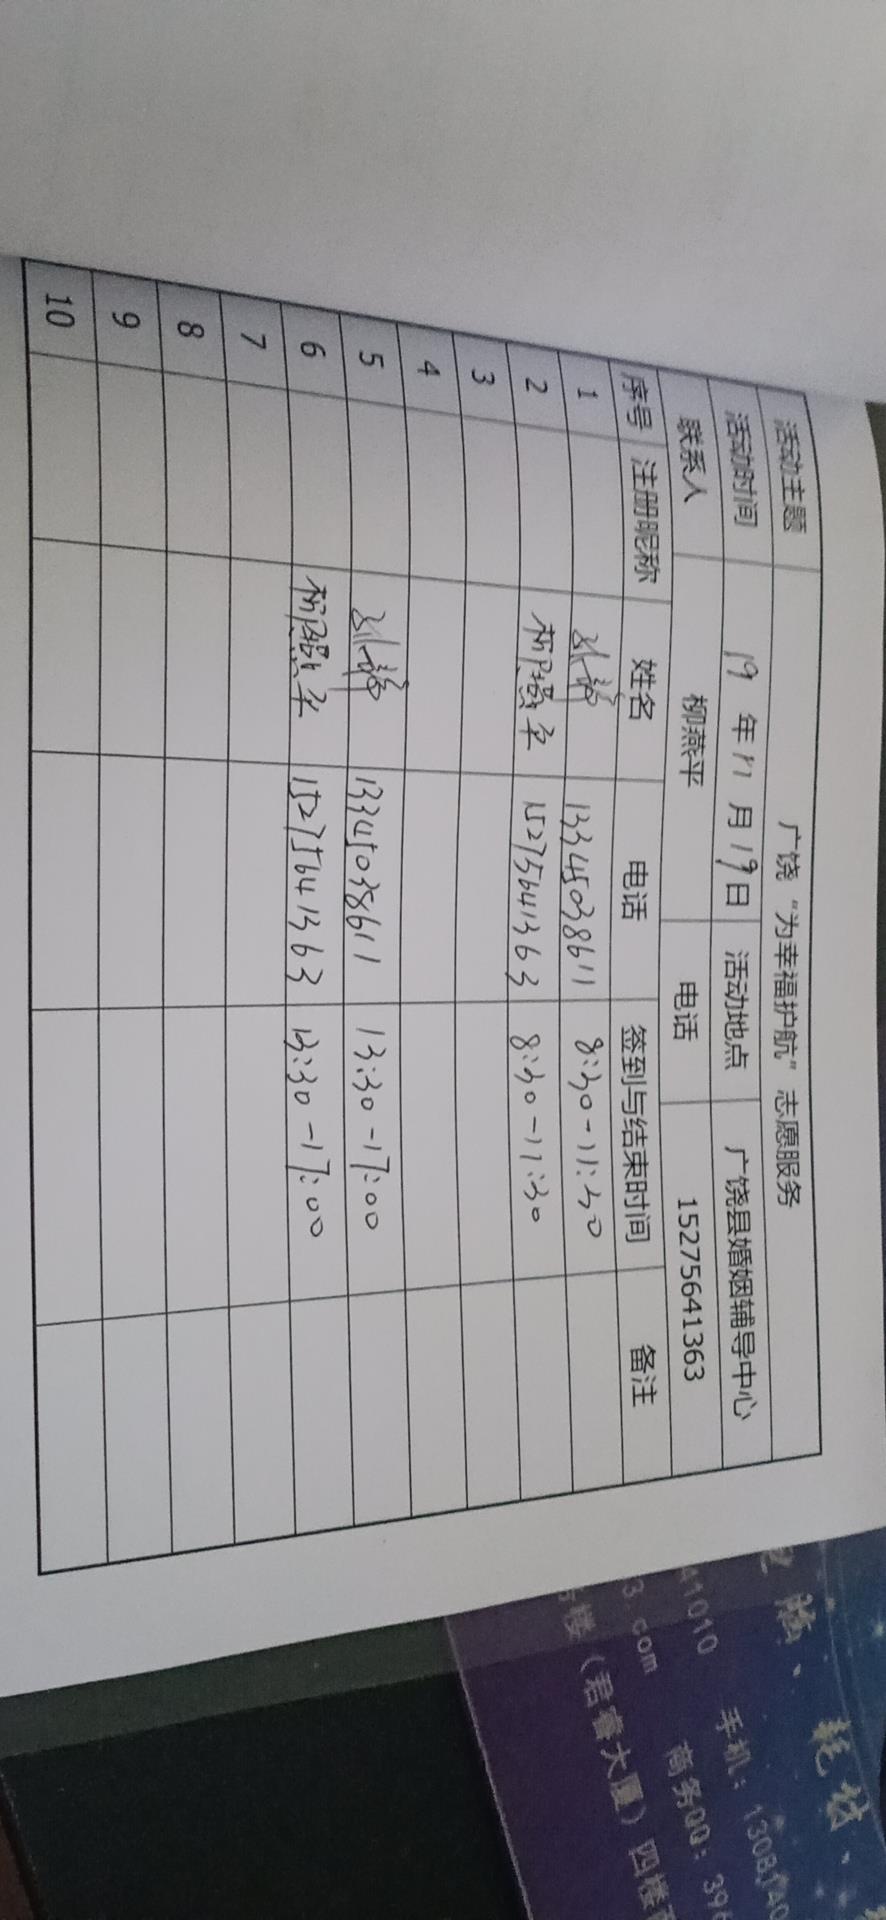 活动主题 广饶“为幸福护航”志愿服务
活动时间 19 年 11 月 19 日 活动地点 广饶县婚姻辅导中心
联系人 柳燕平 电话 15275641363
序号 注册昵称 姓名 电话 签到与结束时间 备注
1 13345038611 8:30-11:30
2 15275641363 8:30-11:30
3
4
5 13345038611 13:30-17:00
6 15275641363 13:30-17:00
7
8
9
10
手机：1308140
41010 商务QQ：396
3.com
楼（君睿大厦）四楼西